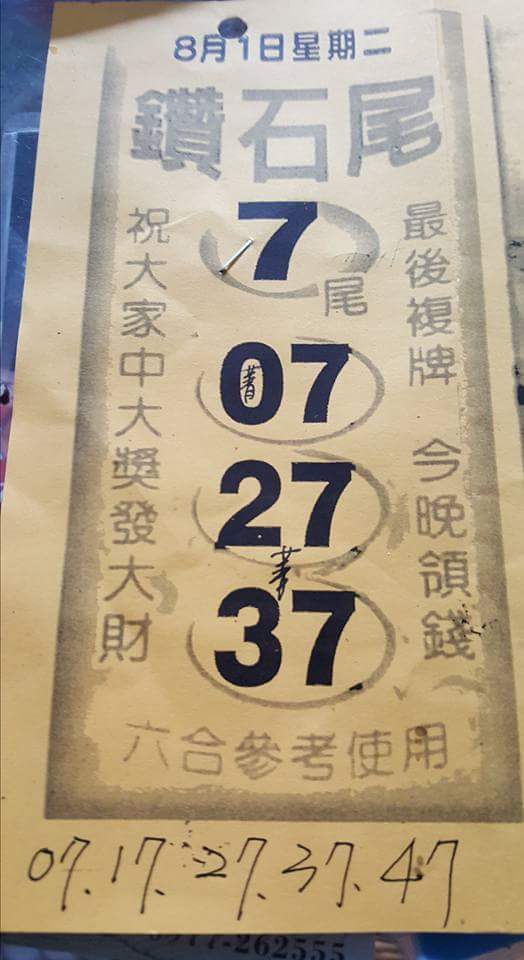 8月1日星期二
鑽石尾
最後複牌 今晚領錢
7尾
07
27
37
祝大家中大獎發大財
六合參考使用
07.17.27.37.47
-262555